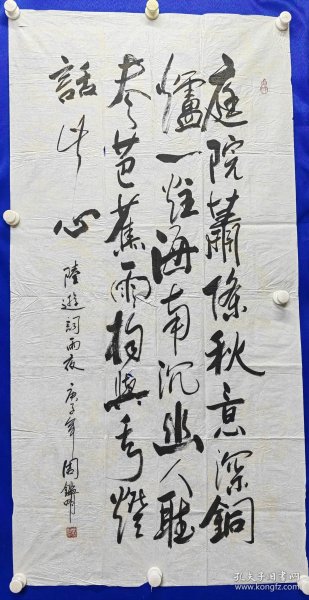 庭院蕭條秋意深銅
爐一炷海南沉幽人聽
尽芭蕉雨獨與青燈
話此心
陸遊詞雨夜 庚子年 周
孔夫子旧书网